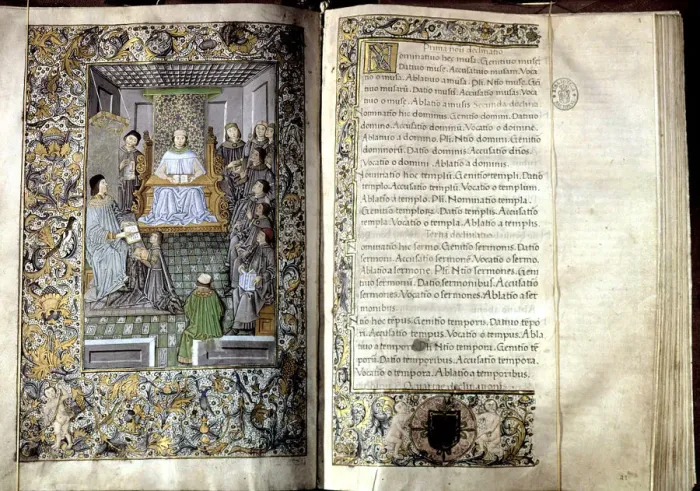 Prima neu declinatio
Nominatiuo hec musa. Genitiuo muse.
Datiuo muse. Accusatiuo musam. Voca
tio o musa. Ablatiuo a musa. Pli. Ntio muse. Geni
tiuo musarū. Datiuo musis. Accusatiuo musas. Voca
tiuo o muse. Ablatio a musis. Secunda declina
Nominatio hic dominus. Genitio domini. Datiuo
domino. Accusatio dominū. Vocatio o domine.
Ablatiuo a domino. Pli. Ntio domini. Genitio
dominorū. Datio dominis. Accusatio dños.
Vocatio o domini. Ablatio a dominis.
Nominatio hoc templū. Genitio templi. Datio
templo. Accusatio templū. Vocatio o templum.
Ablatio a templo. Pli. Nominatio templa.
Genitiuo templorū. Datio templis. Accusatio
templa. Vocatio o templa. Ablatio a templis.
Tertia declinatio
Nominatio hic sermo. Genitio sermonis. Datio
sermoni. Accusatio sermonē. Vocatio o sermo.
Ablatio a sermone. Pli. Ntio sermones. Geni
tiuo sermonū. Datio sermonibus. Accusatio
sermones. Vocatio o sermones. Ablatio a ser
monibus.
Ntio hoc tēpus. Genitio temporis. Datiuo tēpo
ri. Accusatio tempus. Vocatio o tempus. Abla
tiuo a tempore. Pli. Ntio tempora. Genitio tē
porū. Datio temporibus. Accusatio tempora.
Vocatio o tempora. Ablatio a temporibus.